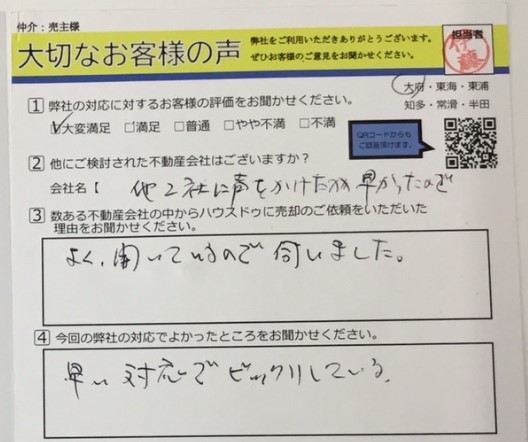 仲介：売主様
大切なお客様の声
弊社をご利用いただきありがとうございます。
ぜひお客様のご意見をお聞かせください。
担当者
伊藤
大府・東海・東浦
知多・常滑・半田
1 弊社の対応に対するお客様の評価をお聞かせください。
☑大変満足 □満足 □普通 □やや不満 □不満
QRコードからも
ご回答頂けます。
2 他にご検討された不動産会社はございますか？
会社名【 他2社に声をかけたが早かったので
3 数ある不動産会社の中からハウスドゥに売却のご依頼をいただいた
理由をお聞かせください。
よく、聞いているので伺いました。
4 今回の弊社の対応でよかったところをお聞かせください。
早い対応でビックリしている。